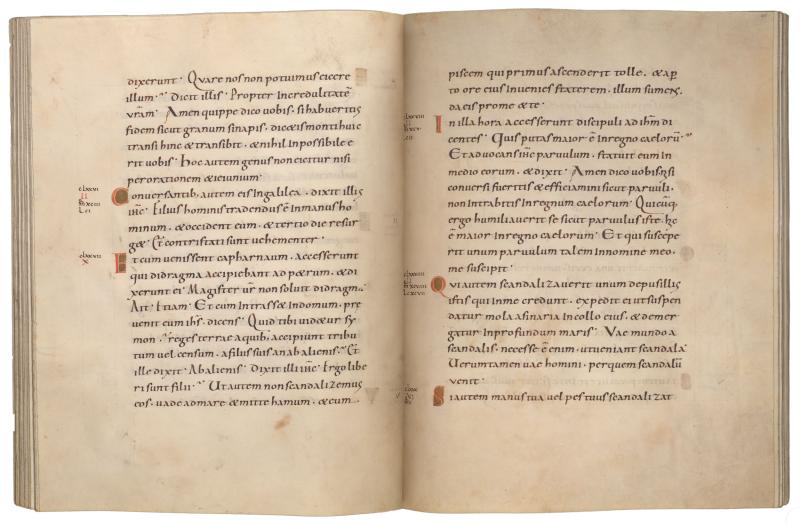 dixerunt· Quare nos non potuimus eicere
illum· Dicit illis· Propter Incredulitatē
vr̄am· Amen quippe dico uobis· sihabueritis
fidem sicut granum sinapis· dicetis montihuic
transi hinc & transibit· & nihil Inpossibile e
rit uobis· Hoc autem genus non eicitur nisi
perorationem & ieiunium·
Conversantib; autem eis Ingalilea· dixit illis
ih̄c· Filius hominis tradendus ē Inmanus ho
minum· & occident eum· & tertio die resur
g&· Et contristati sunt uehementer·
Et cum uenissent capharnaum· accesserunt
qui didragma accipiebant ad p&rum· & di
xerunt ei· Magister ur̄ non soluit didragma·
Ait· Etiam· Et cum Intrass& Indomum· pre
uenit eum ih̄s· dicens· Quid tibi uid&ur sy
mon· reges terrae aquib; accipiunt tribu
tum vel censum· afiliis suis anabalienis· Et
ille dixit· Abalienis· Dixit illi ih̄c· Ergo libe
ri sunt filii· Utautem non scandalizemus
eos· uade admare & mitte hamum· & eum
piscem qui primus ascenderit tolle· & ap̄
to ore eius inuenies staterem· illum sumens·
da eis prome & te·
In illa hora accesserunt discipuli ad ih̄m di
centes· Quis putas maior ē Inregno caelorū·
Et aduocans ih̄c paruulum· statuit eum in
medio eorum· & dixit· Amen dico uobis· nisi
conuersi fueritis & efficiamini sicut paruuli·
non Intrabitis Inregnum caelorum· Quicūq;
ergo humiliauerit se sicut paruulus iste· hic
ē maior Inregno caelorum· Et qui suscepe
rit unum paruulum talem Innomine meo·
me suscipit·
Qui autem scandalizauerit unum depusillis
istis qui Inme credunt· expedit ei ut suspen
datur mola asinaria Incollo eius· & demer
gatur Inprofundum maris· Vae mundo a
scandalis· necesse ē enim· ut ueniant scandala·
Uerumtamen uae homini· perquem scandalū
uenit·
Si autem manus tua vel pes tuus scandalizat